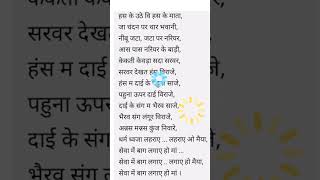 हस के उठे वि हस के माता,
जा चंदन पर चार भवानी,
नीबू जटा, जटा पर नरियर,
आस पास नरियर के बाड़ी,
केकती केवड़ा सदा सरवर,
सरवर देखत हंस विराजे,
हंस म दाई के साजे,
पहुना ऊपर दाई विराजे,
दाई के संग म भैरव साजे,
भैरव संग लंगूर विराजे,
अन्नस मन्नस कुंज निवारे,
धर्म ध्वजा लहराए ... लहराए ओ मैया,
सेवा में बाग लगाए हो मां ...
सेवा में बाग लगाए .. लगाए हो मैया,
सेवा में बाग लगाए हो मां ।